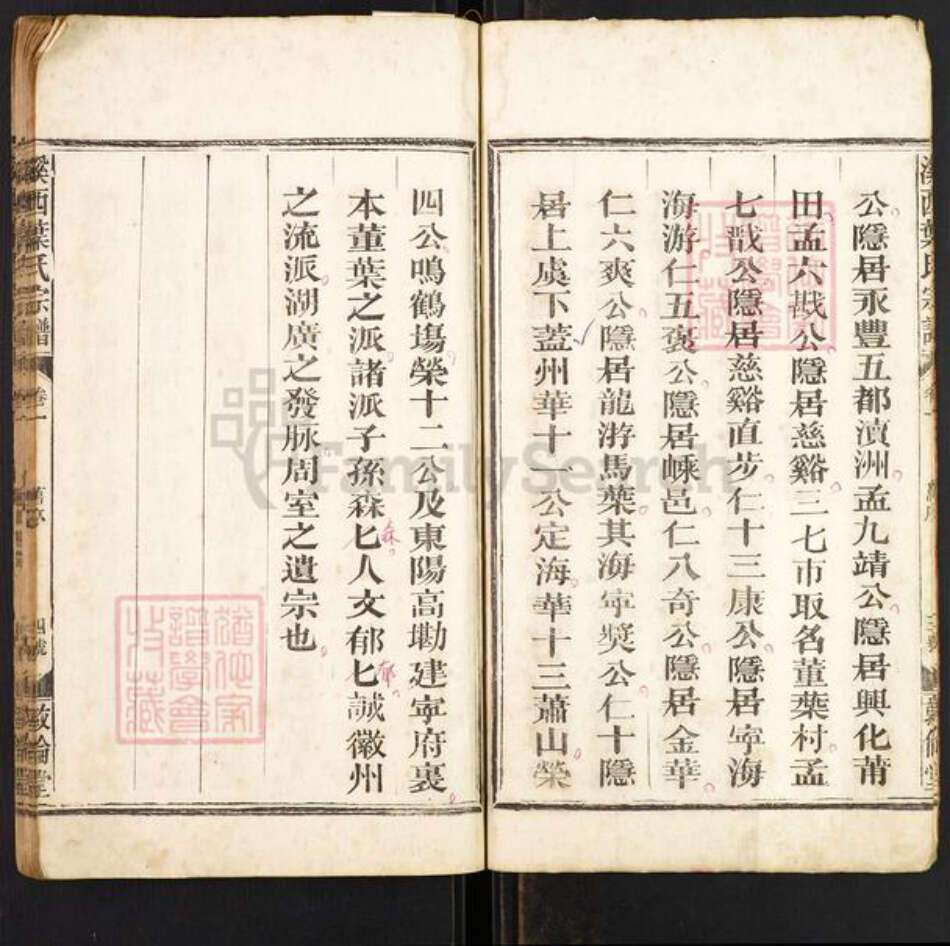 公隱居永豐五都濆洲孟九靖公隱居興化莆
田孟六戡公隱居慈谿三七市取名董葉村孟
七戬公隱居慈谿直步仁十三康公隱居寧海
海游仁五褒公隱居嵊邑仁八奇公隱居金華
仁六爽公隱居龍游馬葉其海寧奬公仁十隱
居上虞下蓋州華十一公定海華十三蕭山榮
四公鳴鶴塲榮十二公及東陽高塘建寧府裏
本董葉之派諸派子孫森匕人文郁匕誠徽州
之流派湖廣之發脉周室之遺宗也
森
郁
溪西葉氏宗譜
卷一
溪西葉氏宗譜
卷一
四號
敦倫堂
譜學會
收藏
FamilySearch